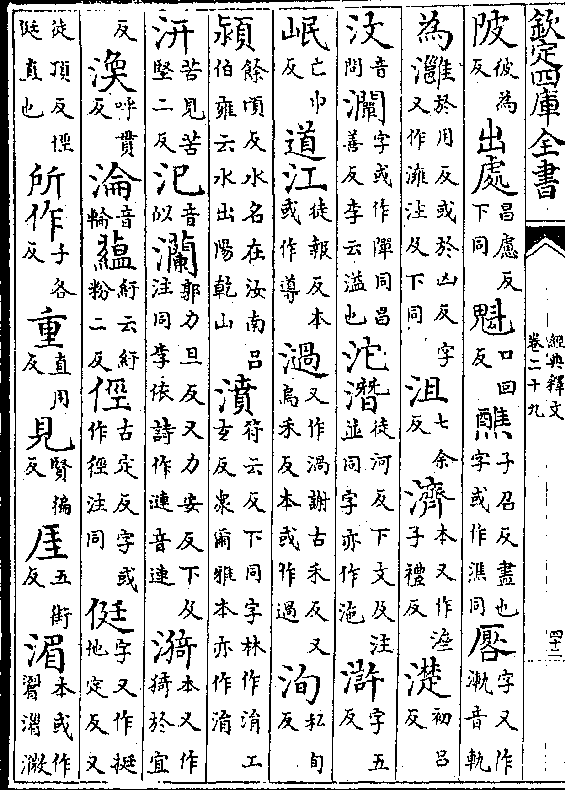 欽定四庫全書 經典釋文 卷二十九 四十二
陂彼為反 出處昌慮反下同 魁口回反 醮子召反盡也字或作潐同 厬字又作漸音軌
為灉於用反或於凶反字又作澭注及下同 沮七余反 濟本又作泲子禮反 濋初吕反
汶音問 灛字或作同昌善反李云溢也 沱潛徒河反下文及注並同字亦作沲 滸字五反
岷亡巾反 道江徒報反本或作導 濄又作渦謝古禾反又烏禾反本或作過 洵私旬反
潁餘頃反水名在汝南吕伯雍云水出陽乾山 濆符云反下同字林作涓工玄反衆爾雅本亦作涓
汧苦見苦堅二反 汜音似 瀾郭力旦反又力安反下及注同李依詩作連音連 漪本又作猗於宜
反 渙呼貫反 淪音輪 蘊紆云紆粉二反 俓古定反字或作徑注同 侹字又作挺地定反又
徒頂反俓侹直也 所作子各反 重直用反 見賢徧反 厓五街反 湄本或作溦